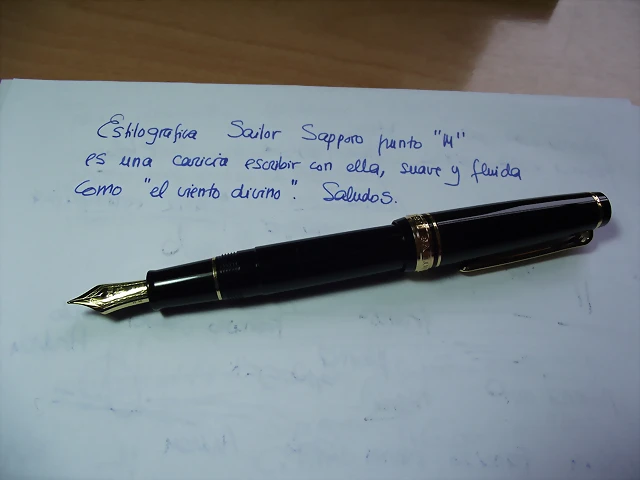 Estilografica Sailor Sapporo punto "M"
es una caricia escribir con ella, suave y fluida
como "el viento divino". Saludos.